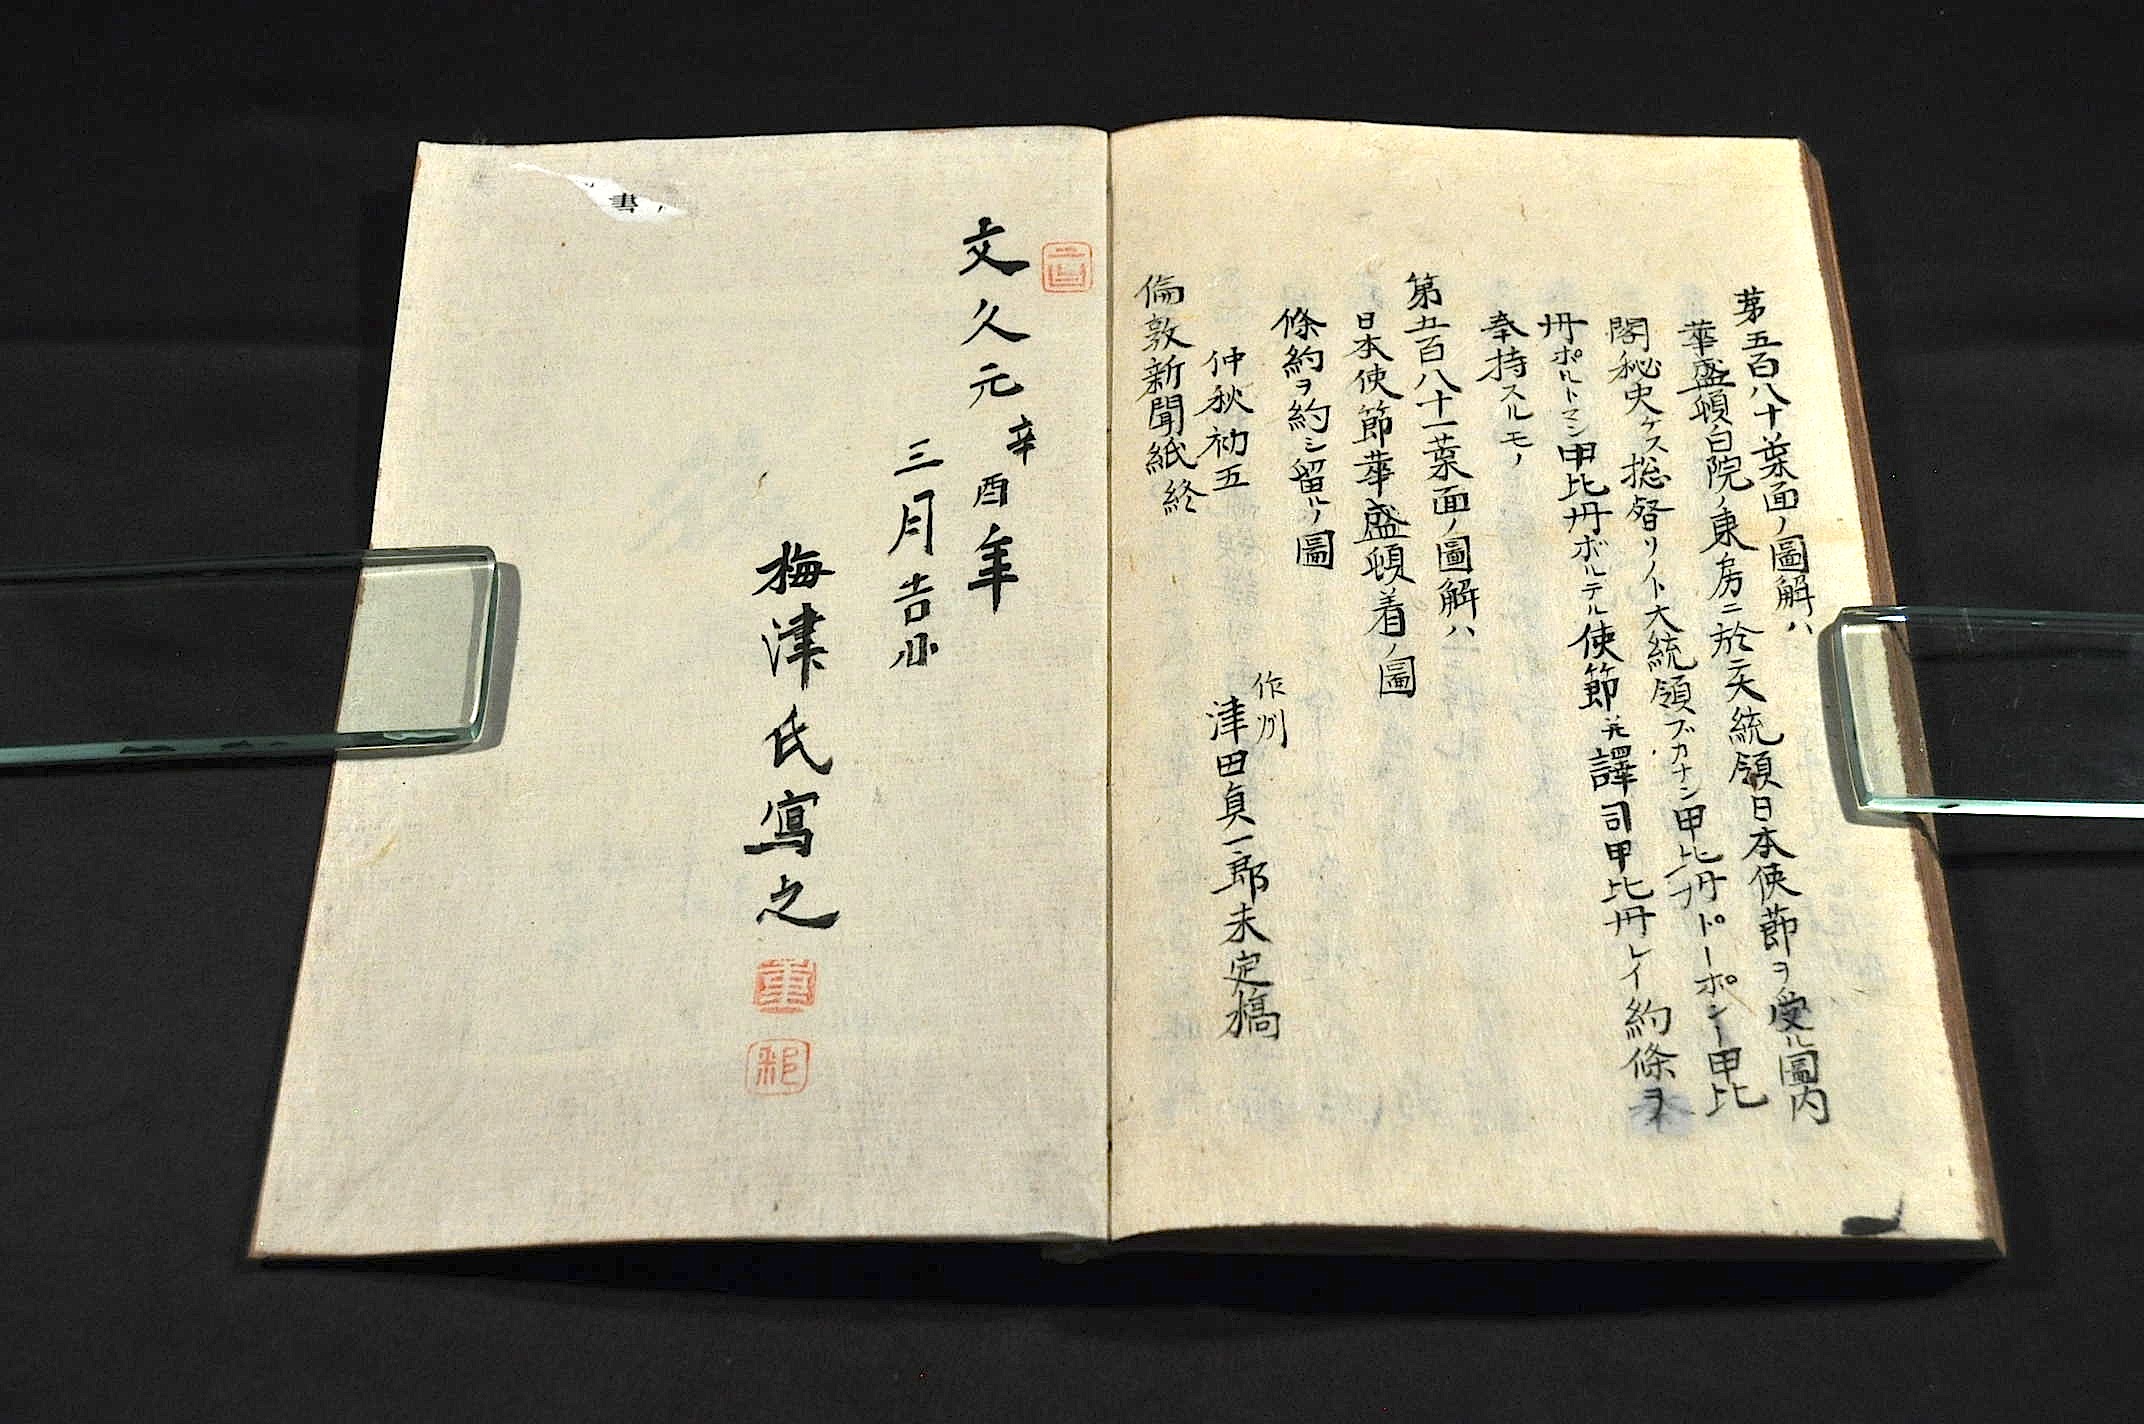 第五百八十葉面ノ圖解ハ
華盛頓白院ノ東房ニ於テ大統領日本使節ヲ受ル圖内
閣秘史ケス総督リノト大統領ブカナン甲比丹ドーポンー甲比
丹ポルトマン甲比丹ボルテル使節并譯司甲比丹レイ約條ヲ
奉持スルモノ
第五百八十一葉面ノ圖解ハ
日本使節華盛頓着ノ圖
條約ヲ約シ留ルノ圖
仲秋初五
作州
津田真一郎未定稿
倫敦新聞紙終
文久元辛酉年
三月吉
梅津氏寫之
書